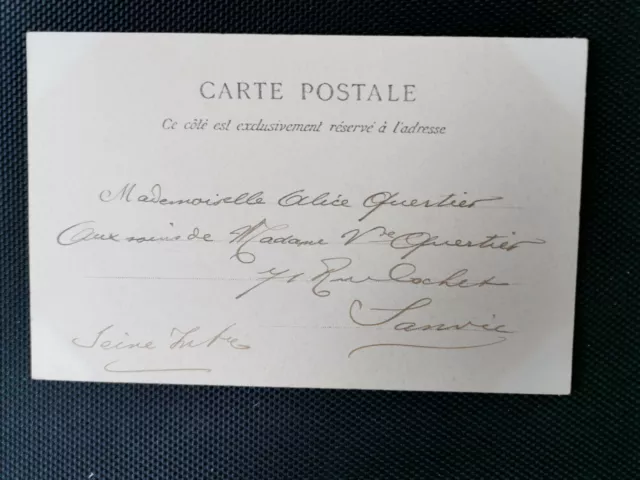 CARTE POSTALE
Ce côté est exclusivement réservé à l'adresse
Mademoiselle Alice Quertier
Aux soins de Madame Vve Quertier
71 Rue Cochet
Sanvic
Seine Infre